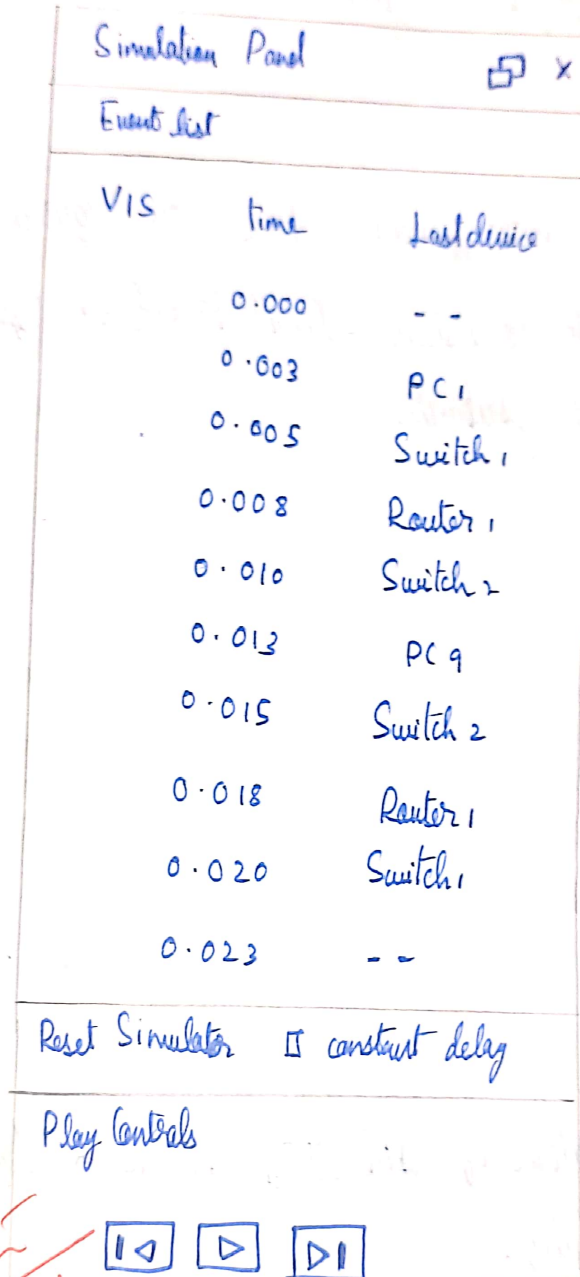 Simulation Panel
Event list
VIS time Last device
0.000 - -
0.003 PC1
0.005 Switch 1
0.008 Router 1
0.010 Switch 2
0.013 PC 9
0.015 Switch 2
0.018 Router 1
0.020 Switch 1
0.023 - -
Reset Simulator constant delay
Play Controls